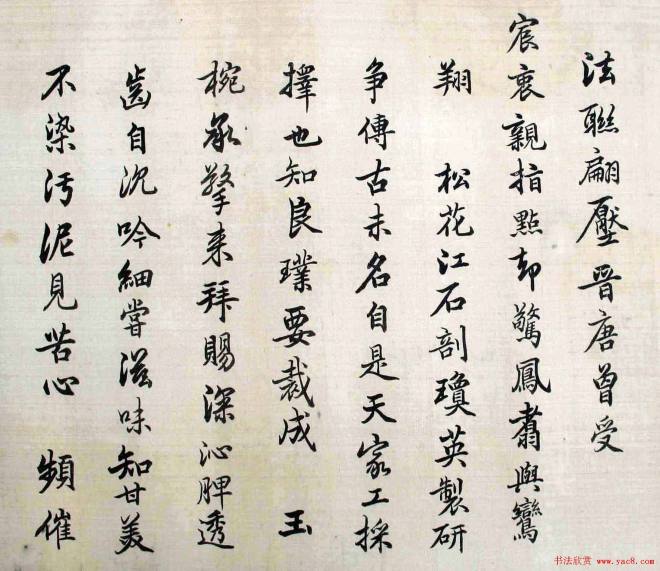 法聯翩壓晉唐曾受
宸衷親指點却驚鳳翥與鸞
翔 松花江石剖瓊英製研
争傳古未名自是天家工採
擇也知良璞要裁成 玉
椀承擎来拜賜深沁脾透
齒自沉吟細嘗滋味知甘美
不染污泥見苦心 頻催
书法欣赏 www.yac8.com